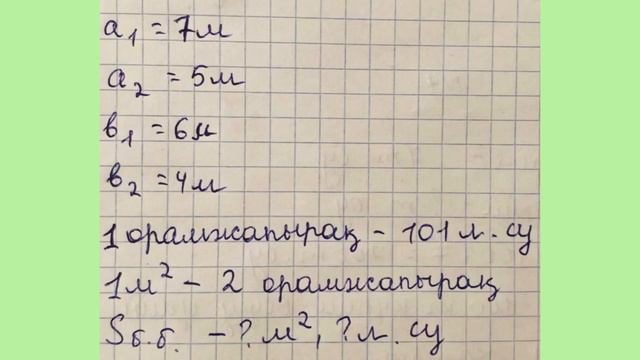 a₁ = 7м
a₂ = 5м
в₁ = 6м
в₂ = 4м
1 орамжапырақ - 101 л. су
1м² - 2 орамжапырақ
Sб.б. - ? м², ? л. су